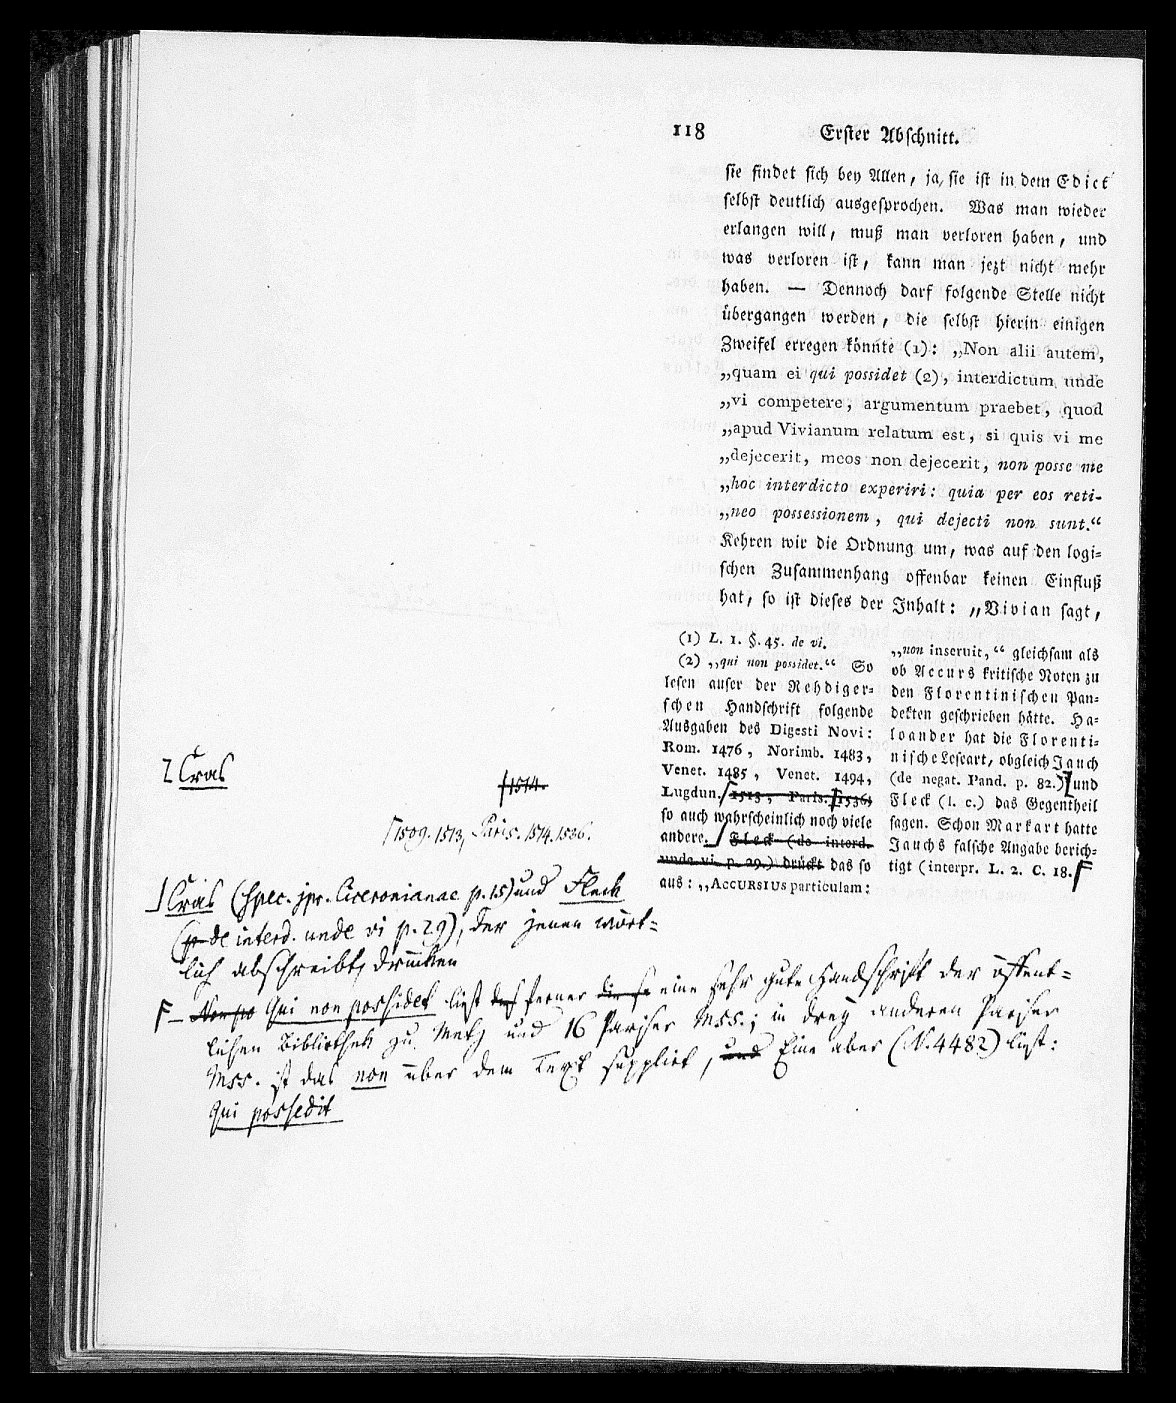 118 Erster Abschnitt.
sie findet sich bey Allen, ja, sie ist in dem Edict
selbst deutlich ausgesprochen. Was man wieder
erlangen will, muß man verloren haben, und
was verloren ist, kann man jezt nicht mehr
haben. — Dennoch darf folgende Stelle nicht
übergangen werden, die selbst hierin einigen
Zweifel erregen könnte (1): „Non alii autem,
„quam ei qui possidet (2), interdictum unde
„vi competere, argumentum praebet, quod
„apud Vivianum relatum est, si quis vi me
„dejecerit, meos non dejecerit, non posse me
„hoc interdicto experiri: quia per eos reti-
„neo possessionem, qui dejecti non sunt.“
Kehren wir die Ordnung um, was auf den logi-
schen Zusammenhang offenbar keinen Einfluß
hat, so ist dieses der Inhalt: „Vivian sagt,
(1) L. 1. §. 45. de vi.
(2) „qui non possidet.“ So
lesen auser der Rehdiger-
schen Handschrift folgende
Ausgaben des Digesti Novi:
Rom. 1476, Norimb. 1483,
Venet. 1485, Venet. 1494,
Lugdun. 1513, Paris. 1536;
so auch wahrscheinlich noch viele
andere. Fleck (de interd.
unde vi. p. 29.) drückt das so
aus: „ACCURSIUS particulam:
„non inseruit,“ gleichsam als
ob Accurs kritische Noten zu
den Florentinischen Pan-
dekten geschrieben hätte. Ha-
loander hat die Florenti-
nische Leseart, obgleich Jauch
(de negat. Pand. p. 82.) und
Fleck (l. c.) das Gegentheil
sagen. Schon Markart hatte
Jauchs falsche Angabe berich-
tigt (interpr. L. 2. C. 18.
Cras
1514.
1509. 1513, Paris. 1514. 1536.
Cras (spec. jpr. Ciceronianae p. 15) und Fleck
(p de interd. unde vi p. 29), der jenen wört-
lich abschreibt, drucken
– Non po Qui non possidet liest das ferner die so eine sehr gute Handschrift der öffent-
lichen Bibliothek zu Metz und 16 Pariser Mss.; in drey anderen Pariser
Mss. ist das non über dem Text supplirt, und Eine aber (N. 4482) liest:
qui possedit